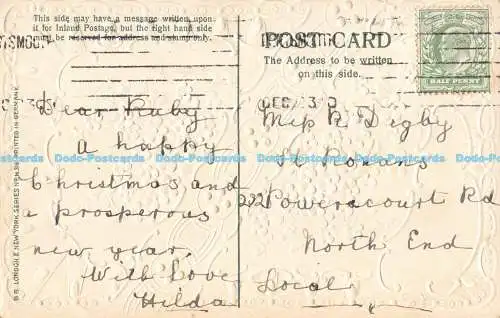 This side may have a message written upon
it for Inland Postage, but the right hand side
must be reserved for address and stamp only.
POST CARD
The Address to be written
on this side.
HALF PENNY
DEC 3
Dear Ruby
A happy
Christmas and
a prosperous
new year,
With Love
Hilda
Miss R Digby
St Ronans
202 Powerscourt Rd
North End
Local
B.B. LONDON & NEW YORK. SERIES No PRINTED IN GERMANY.
Dodo-Postcards